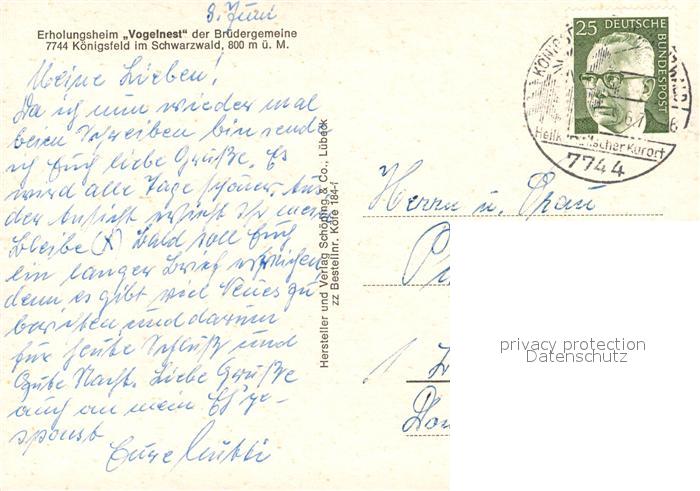 8. Juni
Erholungsheim „Vogelnest" der Brüdergemeine
7744 Königsfeld im Schwarzwald, 800 m ü. M.
Meine Lieben!
Da ich nun wieder mal
beim Schreiben bin send
ich Euch liebe Grüße. Es
wird alle Tage schöner. Auf
der Ansicht seht Ihr mei
Bleibe (X) Bald soll Euch
ein langer Brief erfreuen
denn es gibt viel Neues zu
berichten und darum
für heute Schluß und
Gute Nacht. Liebe Grüße
auch an mein
Eure Mutti
Hersteller und Verlag Schöning & Co., Lübeck
zz Bestellnr. Köfe 184-f
25 DEUTSCHE
BUNDESPOST
Heilklimatischer Kurort
7744
Herrn u. Frau
1
privacy protection
Datenschutz